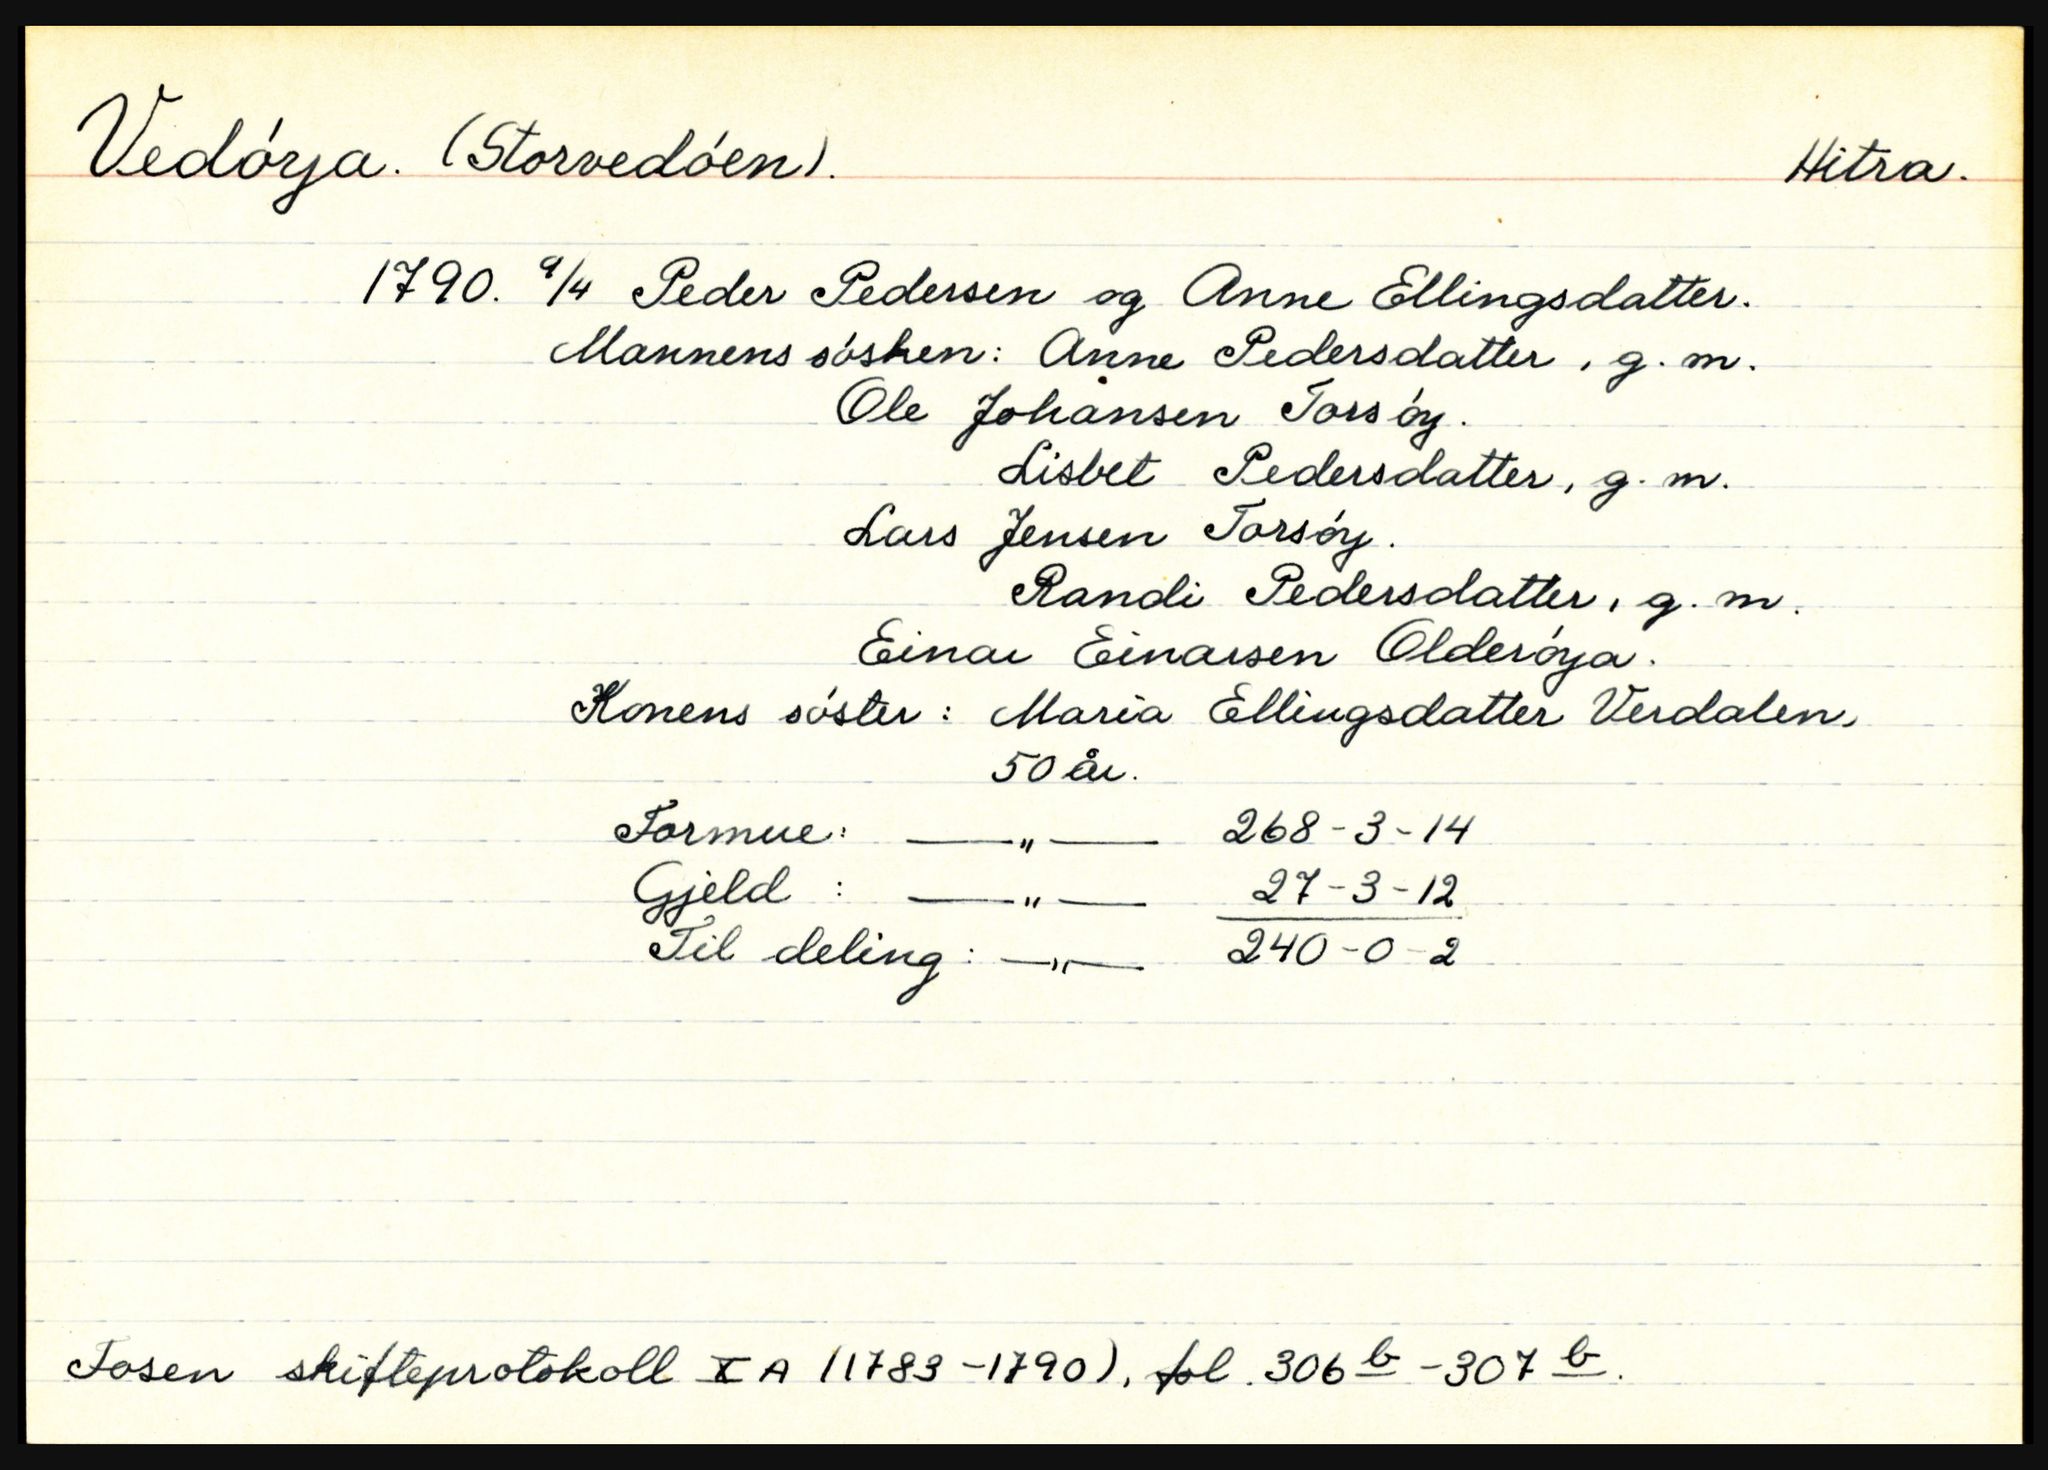 Vedóya. (Storvedóen). Hitra.
1790. 9/4 Peder Pedersen og Anne Ellingsdatter.
Mannens sósken: Anne Pedersdatter, g. m.
Ole Johansen Torsóy.
Lisbet Pedersdatter, g. m.
Lars Jensen Torsóy.
Randi Pedersdatter, g. m.
Einar Einarsen Olderóya.
Konens sóster: Maria Ellingsdatter Verdalen,
50 år.
Formue: —"— 268-3-14
Gjeld : —"— 27-3-12
Til deling: —"— 240-0-2
Fosen skifteprotokoll X A (1783-1790), fol. 306 b - 307 b.